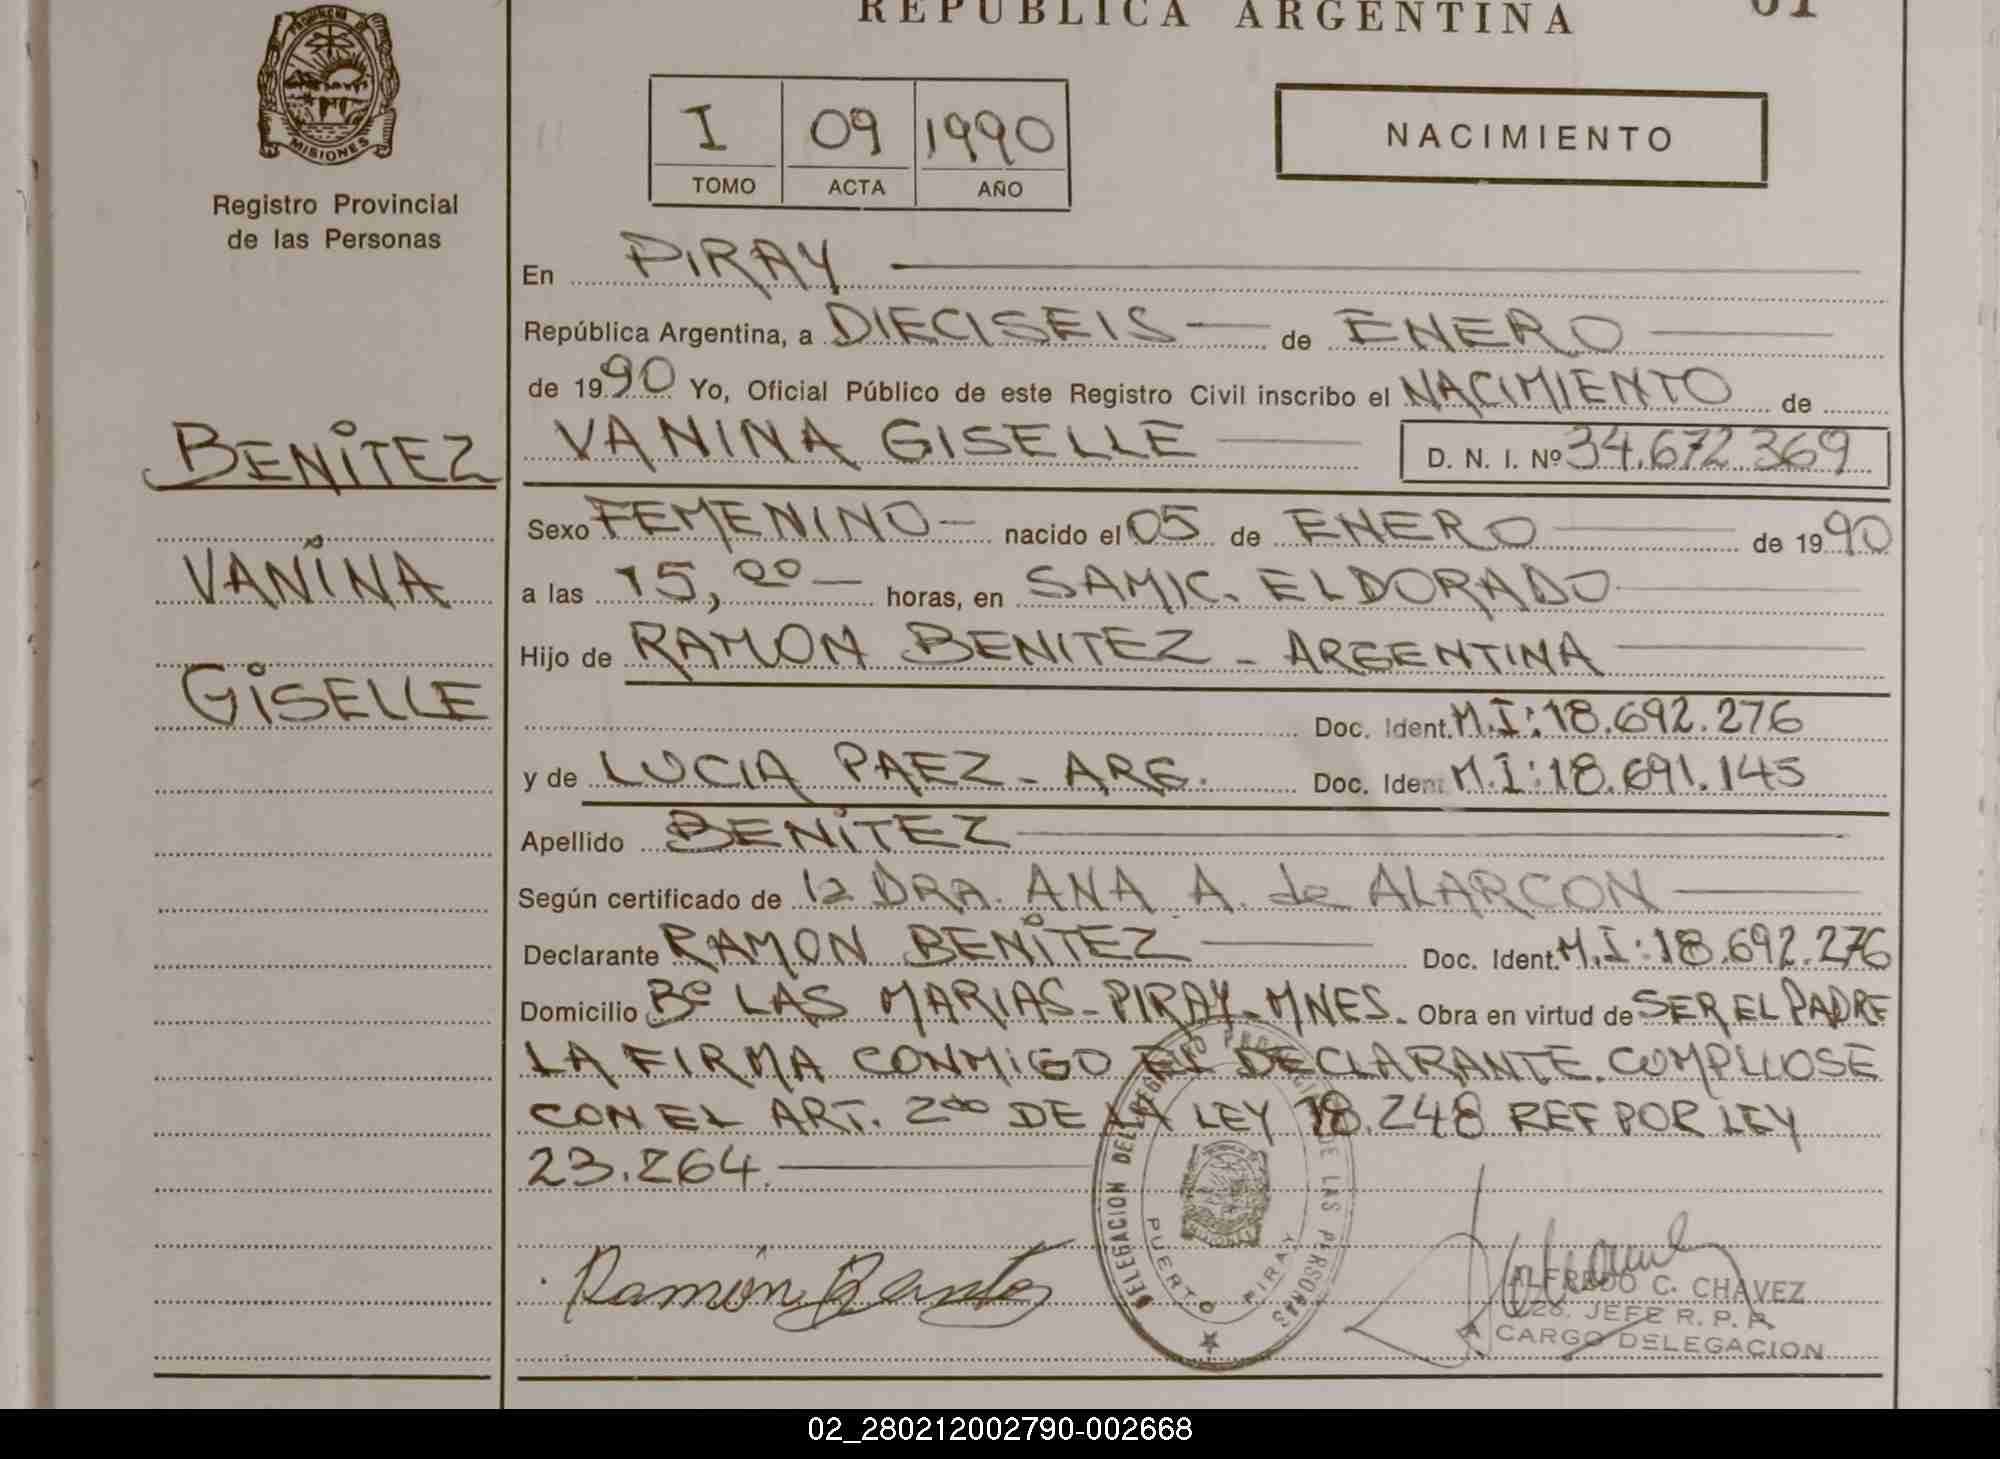 REPUBLICA ARGENTINA 01
PROVINCIA DE
MISIONES
Registro Provincial
de las Personas
I 09 1990
TOMO ACTA AÑO
NACIMIENTO
En PIRAY
República Argentina, a DIECISEIS de ENERO
de 1990 Yo, Oficial Público de este Registro Civil inscribo el NACIMIENTO de
VANINA GISELLE D. N. I. Nº 34.672.369
BENITEZ
VANINA
GISELLE
Sexo FEMENINO nacido el 05 de ENERO de 1990
a las 15,00 horas, en SAMIC. ELDORADO
Hijo de RAMON BENITEZ - ARGENTINA
Doc. Ident. M.I: 18.692.276
y de LUCIA PAEZ - ARG. Doc. Ident M.I: 18.691.145
Apellido BENITEZ
Según certificado de la DRA. ANA A. de ALARCON
Declarante RAMON BENITEZ Doc. Ident. M.I: 18.692.276
Domicilio Bº LAS MARIAS - PIRAY - MNES. Obra en virtud de SER EL PADRE
LA FIRMA CONMIGO EL DECLARANTE. COMPLIOSE
CON EL ART. 2do DE LA LEY 18.248 REF POR LEY
23.264.
DELEGACION DEL REGISTRO PROVINCIAL DE LAS PERSONAS
PUERTO PIRAY
Ramón
ALFREDO C. CHAVEZ
2º. JEFE R. P. P.
A CARGO DELEGACION
02_280212002790-002668